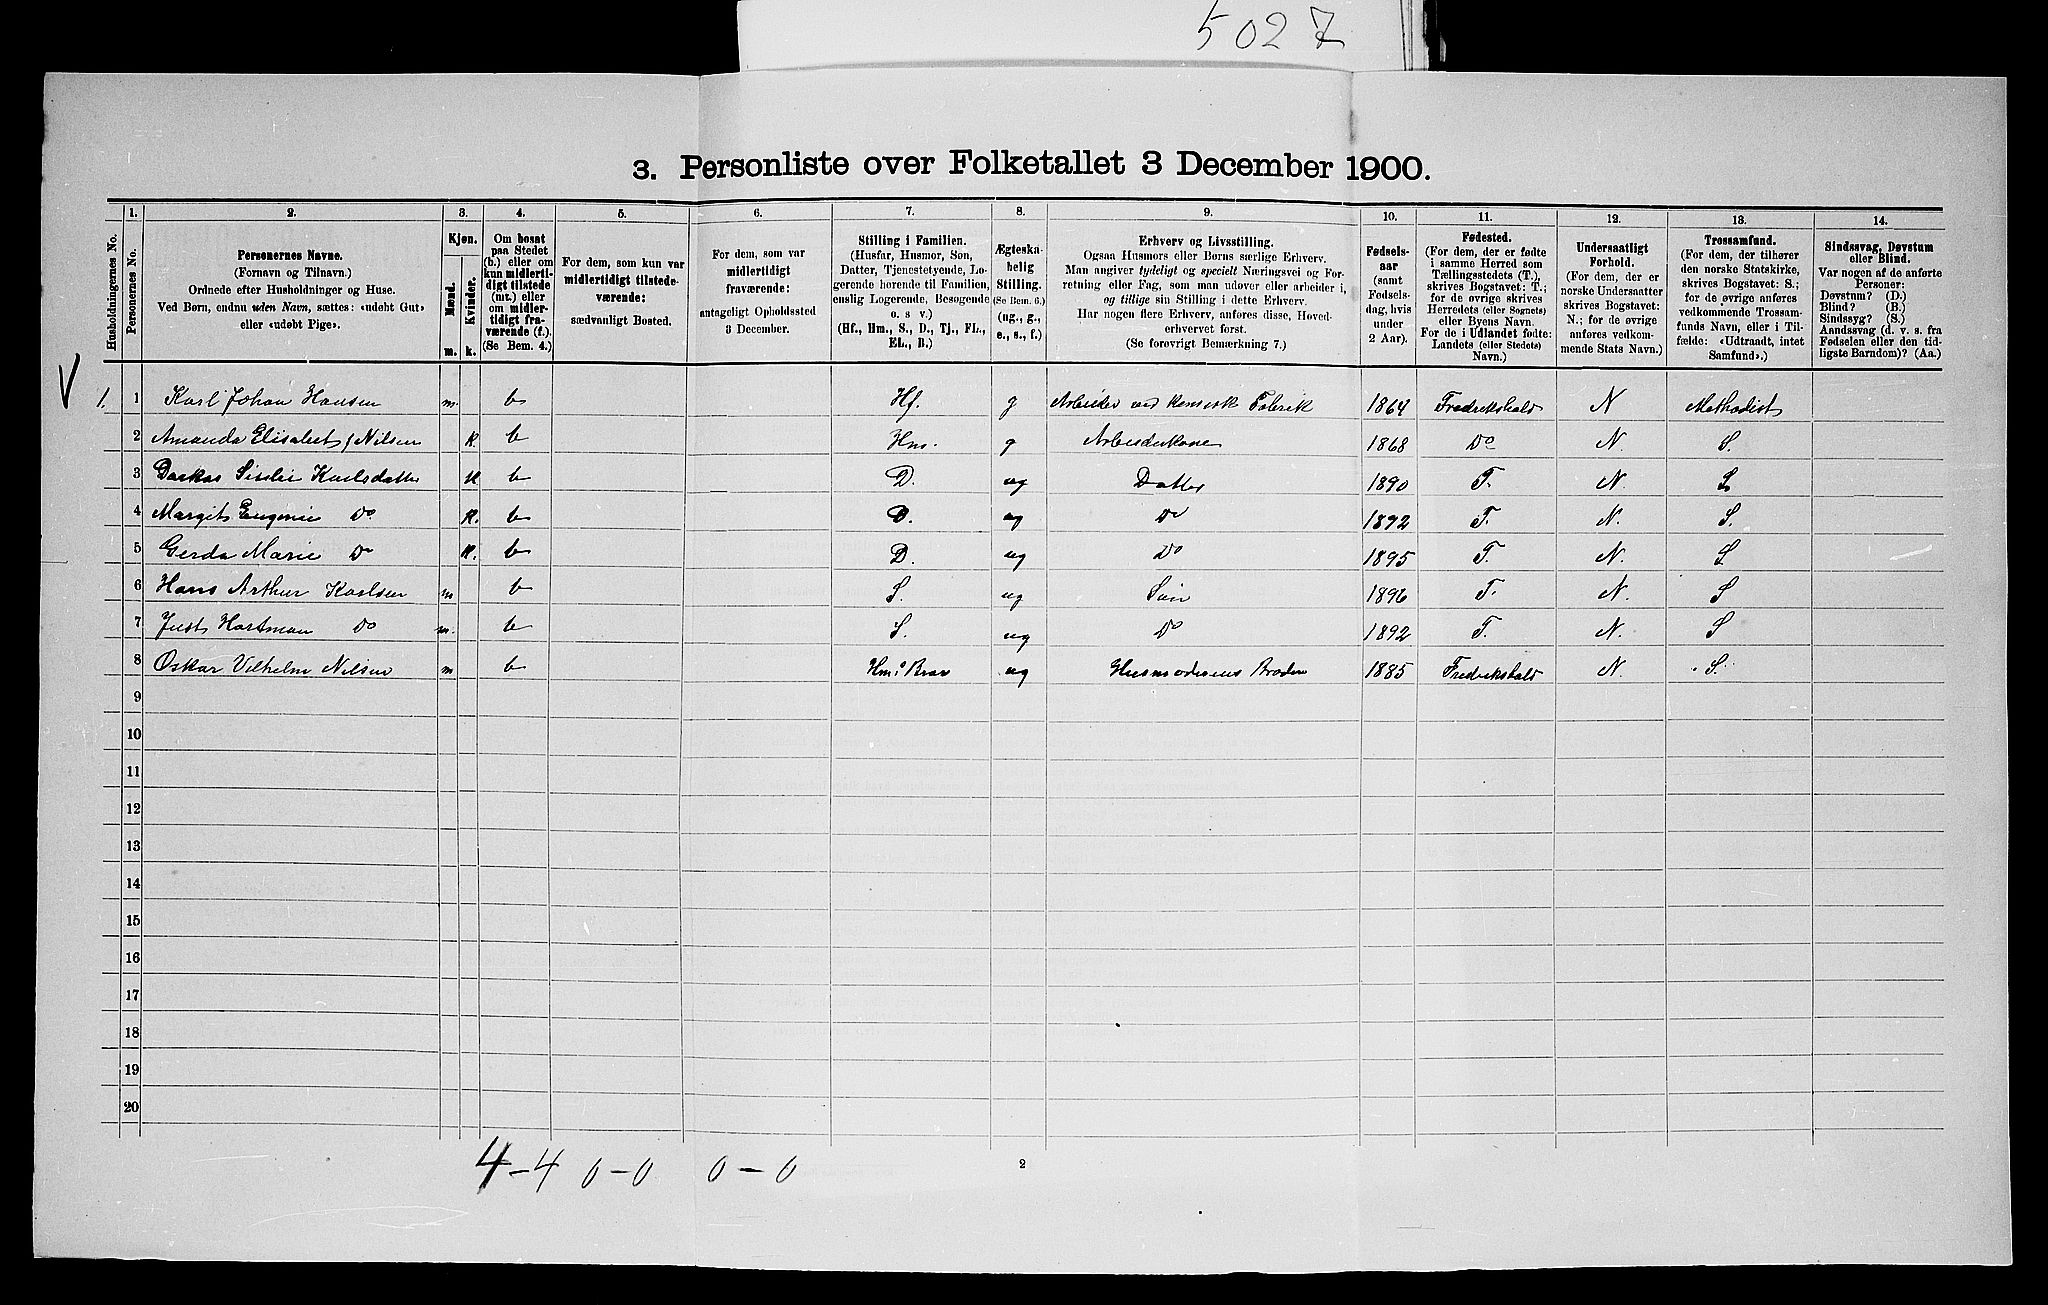 5027
3. Personliste over Folketallet 3 December 1900.
1. 2. 3. 4. 5. 6. 7. 8. 9. 10. 11. 12. 13. 14.
Husholdningernes No.
Personernes No.
Personernes Navne.
(Fornavn og Tilnavn.)
Ordnede efter Husholdninger og Huse.
Ved Børn, endnu uden Navn, sættes: «udøbt Gut»
eller «udøbt Pige».
Kjøn.
Mænd.
Kvinder.
m. k.
Om bosat
paa Stedet
(b.) eller om
kun midlerti-
digt tilstede
(mt.) eller
om midler-
tidigt fra-
værende (f.).
(Se Bem. 4.)
For dem, som kun var
midlertidigt tilstede-
værende:
sædvanligt Bosted.
For dem, som var
midlertidigt
fraværende:
antageligt Opholdssted
3 December.
Stilling i Familien.
(Husfar, Husmor, Søn,
Datter, Tjenestetyende, Lo-
gerende hørende til Familien,
enslig Logerende, Besøgende
o. s v.)
(Hf., Hm., S., D., Tj., FL.,
EL., B.)
Ægteska-
belig
Stilling.
(Se Bem. 6.)
(ug., g.,
e., s., f.)
Erhverv og Livsstilling.
Ogsaa Husmors eller Børns særlige Erhverv.
Man angiver tydeligt og specielt Næringsvei og For-
retning eller Fag, som man udøver eller arbeider i,
og tillige sin Stilling i dette Erhverv.
Har nogen flere Erhverv, anføres disse, Hoved-
erhvervet først.
(Se forøvrigt Bemærkning 7.)
Fødsels-
aar
(samt
Fødsels-
dag, hvis
under
2 Aar).
Fødested.
(For dem, der er fødte
i samme Herred som
Tællingsstedets (T.),
skrives Bogstavet: T.;
for de øvrige skrives
Herredets (eller Sognets)
eller Byens Navn.
For de i Udlandet fødte:
Landets (eller Stedets)
Navn.)
Undersaatligt
Forhold.
(For dem, der er
norske Undersaatter
skrives Bogstavet:
N.; for de øvrige
anføres vedkom-
mende Stats Navn.)
Trossamfund.
(For dem, der tilhører
den norske Statskirke,
skrives Bogstavet: S.;
for de øvrige anføres
vedkommende Trossam-
funds Navn, eller i Til-
fælde: «Udtraadt, intet
Samfund».)
Sindssvag, Døvstum
eller Blind.
Var nogen af de anførte
Personer:
Døvstum? (D.)
Blind? (B.)
Sindssyg? (S.)
Aandssvag (d. v. s. fra
Fødselen eller den tid-
ligste Barndom)? (Aa.)
V 1. 1 Karl Johan Hansen m. b Hf. g Arbeider ved Fabrik 1864 Fredrikshald N Methodist
2 Amanda Elisabet f Nilsen k. b Hm. g Arbeiderkone 1868 Do N. S.
3 Dorkas Sislie Karlsdatter k b D. ug Datter 1890 T. N. S
4 Margit Eugenie Do k. b D. ug Do 1892 T. N. S.
5 Gerda Marie Do k. b D. ug Do 1895 T. N. S
6 Hans Arthur Karlsen m b S. ug Søn 1896 T. N. S
7 Just Hartman Do m. b S. ug Do 1892 T. N. S
8 Oskar Vilhelm Nilsen m b Hm's Bror ug Husmoderens Broder 1885 Fredrikshald N. S.
9
10
11
12
13
14
15
16
17
18
19
20
4-4 0-0 0-0
2